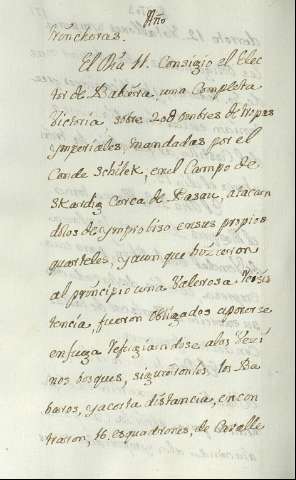 Año
trincheras.
El Dia 11. Consigio el Elec
tor de Babiera una Completa
Victoria sobre 20[?] ombres de tropas
ymperiales, mandadas por el
Conde Schilek, en el Campo de
Skardig cerca de Pasau, atacan
dolos de ymprobiso en sus propios
quarteles, y aunque hizieron
al principio una Valerosa Resis
tencia, fueron obligados a ponerse
en fuga refugiandose a los Veci
nos bosques, siguieronlos los Ba
baros, y a corta distancia, encon
traron, 16. esquadrones, de Cavalle